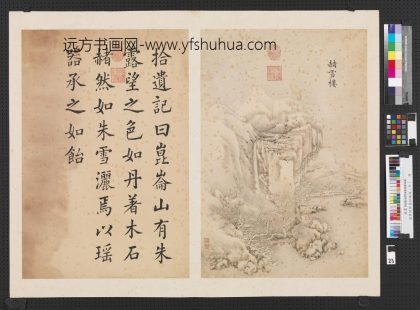 远方书画网-www.yfshuhua.com
拾遺記曰崑崙山有朱
露望之色如丹著木石
赭然如朱雪灑焉以瑶
器承之如飴
赭雪樓